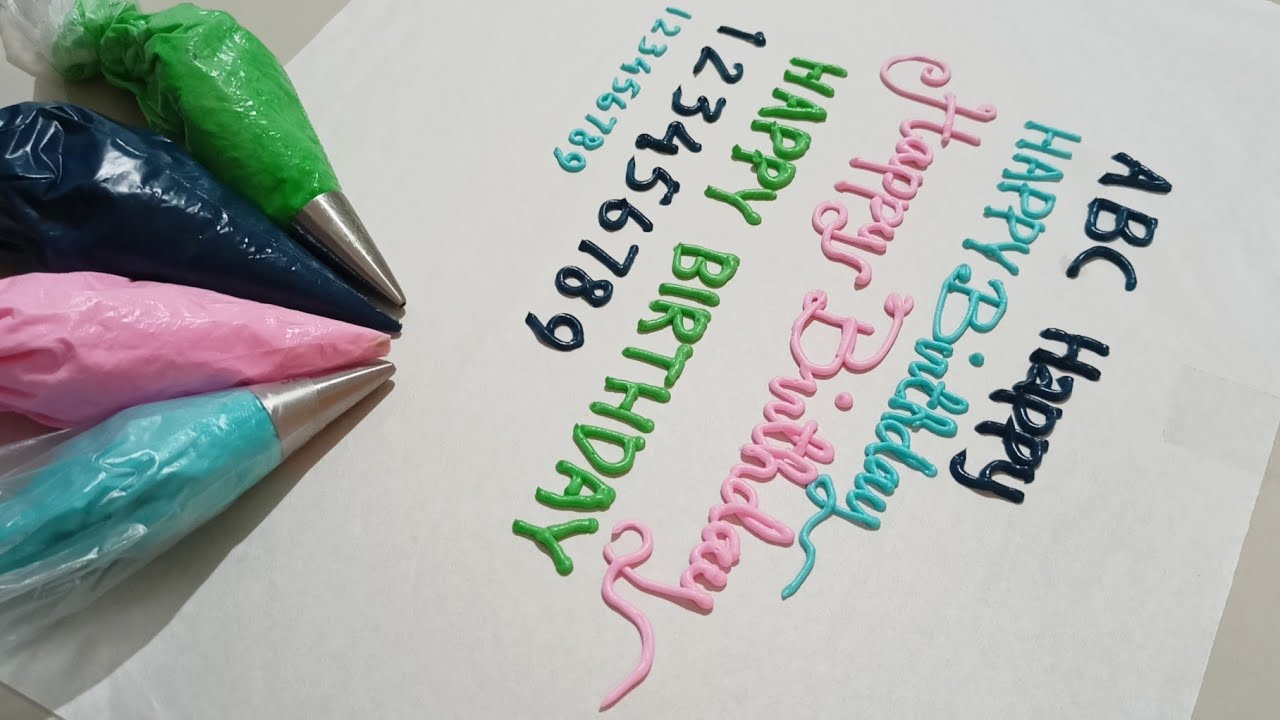 ABC Happy
HAPPY Birthday
Happy Birthday
HAPPY BIRTHDAY
123456789
123456789